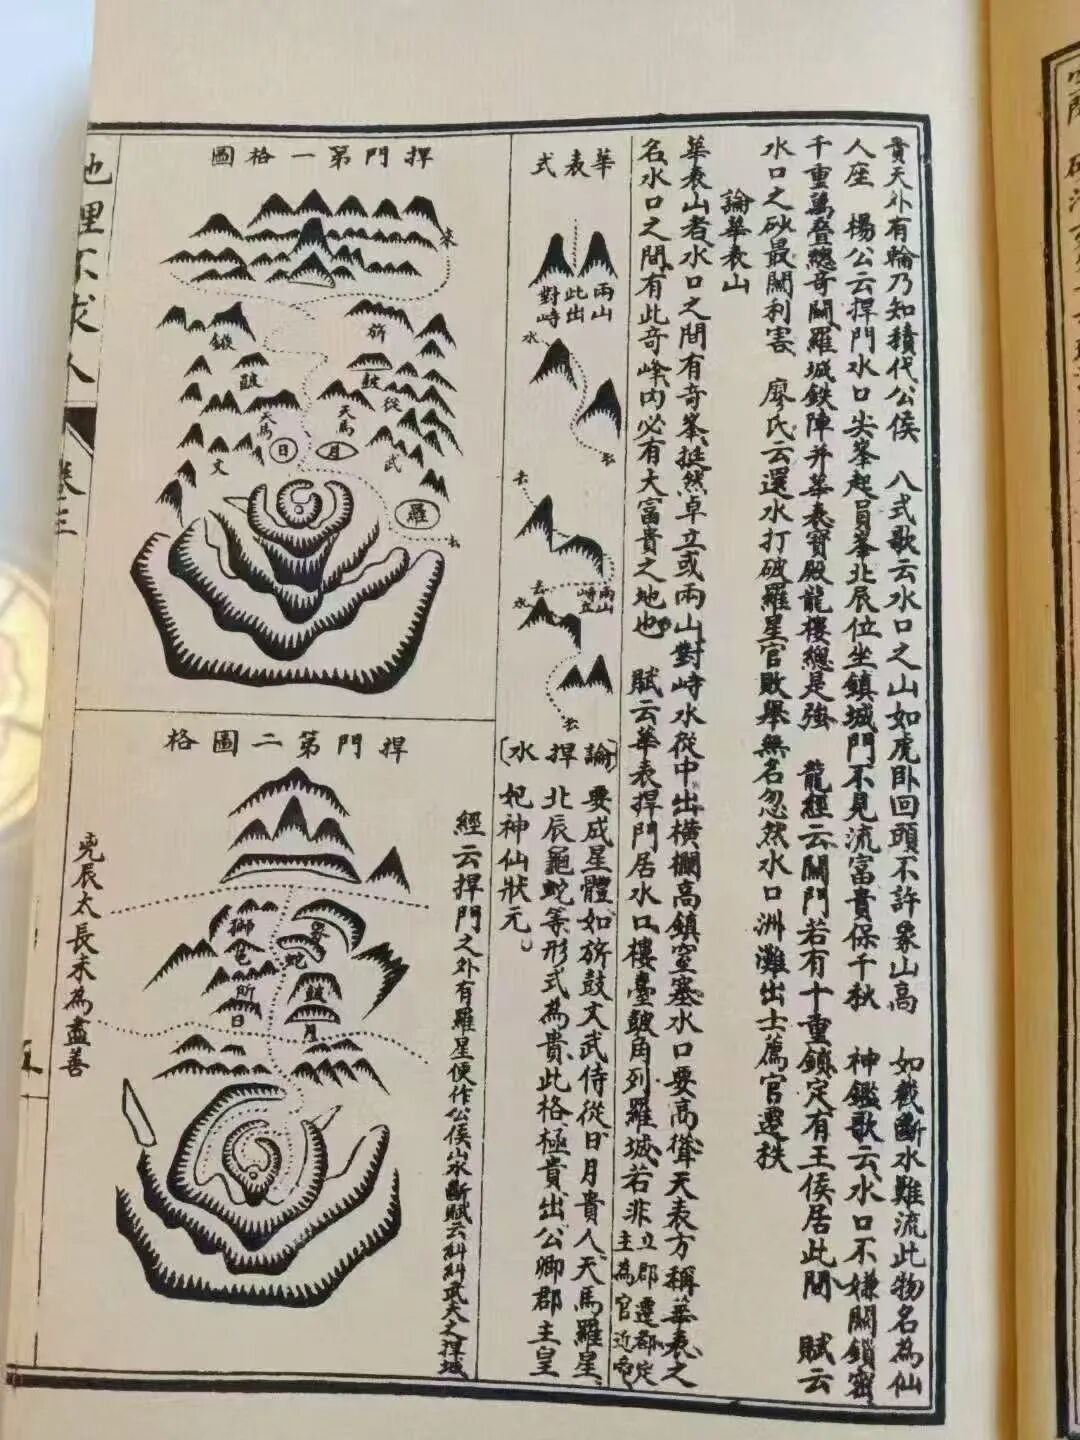 貴天外有輪乃知積代公侯　八式歌云水口之山如虎卧回頭不許衆山高　如截斷水難流此物名為仙
人座　楊公云捍門水口尖峯起員峯北辰位坐鎮城門不見流富貴保千秋　神鑑歌云水口不嫌關鎖密
千重萬叠總奇關羅城鉄陣并華表寶殿龍樓總是強　龍經云關門若有十重鎖定有王侯居此間　賦云
水口之砂最關利害　廖氏云還水打破羅星官敗舉無名忽然水口洲灘出士薦官遷秩
論華表山
華表山者水口之間有奇峯挺然卓立或兩山對峙水從中出橫欄高鎮窒塞水口要高聳天表方稱華表之
名水口之間有此奇峰内必有大富貴之地也　賦云華表捍門居水口樓臺皷角列羅城若非立郡遷郡定主為官近
華表式
兩山
此出
對峙
水
去
去
兩山
峙立
去
水
去
[論捍水]
要成星體如旂鼓文武侍從日月貴人天馬羅星
北辰龜蛇等形式為貴此格極貴出公卿郡主皇
妃神仙狀元。
捍門第一格圖
來
旂
皷
從
天馬
天馬
月
日
武
文
羅
去
捍門第二圖格
經云捍門之外有羅星便作公侯山水斷賦云糾糾武夫之捍城
獅
象
龜
蛇
皷
日
月
兜辰太長未為盡善
地理不求人
卷三
五